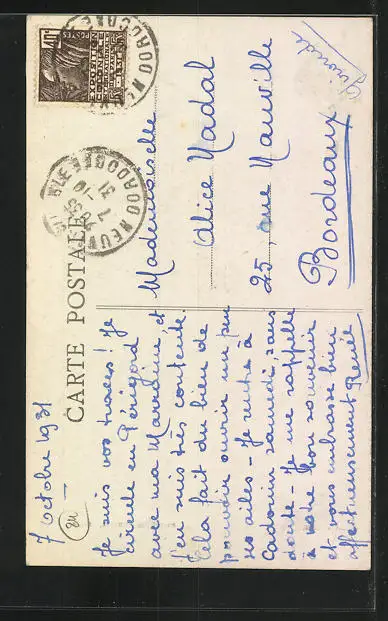 7 octobre 1931
CARTE POSTALE
Je suis vos traces! Je
circule en Périgord
avec ma Marraine et
j'en suis très contente.
Cela fait du bien de
pouvoir ouvrir un peu
ses ailes - Je rentre à
Cadouin samedi, sans
doute - Je me rappelle
à votre bon souvenir
et vous embrasse bien
affectueusement Renée
40c
POSTES
EXPOSITION
COLONIALE
PARIS
Mademoiselle
Alice Nadal
25, rue Nauville
Bordeaux
Gironde